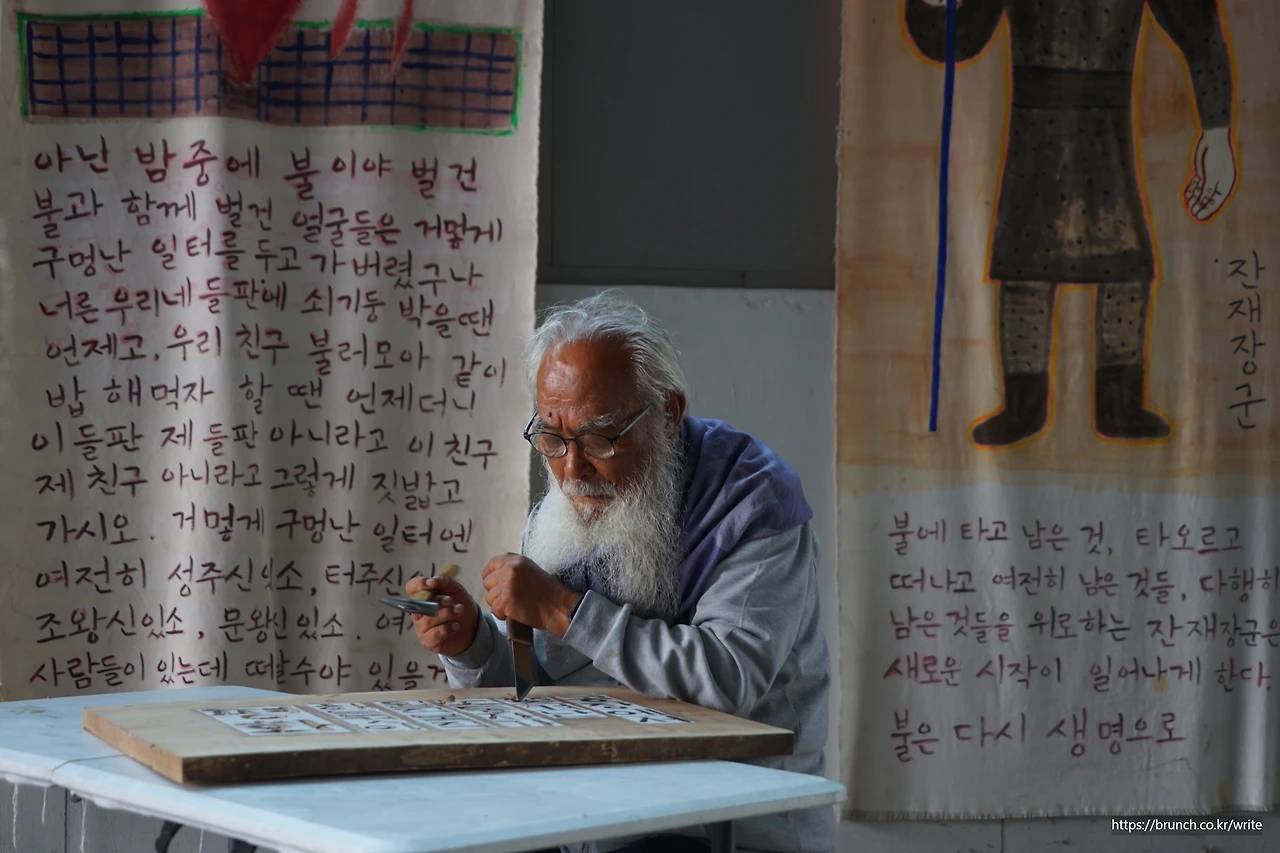 아닌 밤중에 불이야 벌건
불과 함께 벌건 얼굴들은 거멓게
구멍난 일터를 두고 가버렸구나
너른 우리네 들판에 쇠기둥 박을땐
언제고, 우리 친구 불러모아 같이
밥 해먹자 할 땐 언제더니
이 들판 제 들판 아니라고 이 친구
제 친구 아니라고 그렇게 짓밟고
가시오. 거멓게 구멍난 일터엔
여전히 성주신있소, 터주신
조왕신있소, 문왕신있소.
사람들이 있는데 떠날수야 있을
잔재장군
불에 타고 남은 것, 타오르고
떠나고 여전히 남은 것들, 다행히
남은 것들을 위로하는 잔재장군은
새로운 시작이 일어나게 한다.
불은 다시 생명으로
https://brunch.co.kr/write